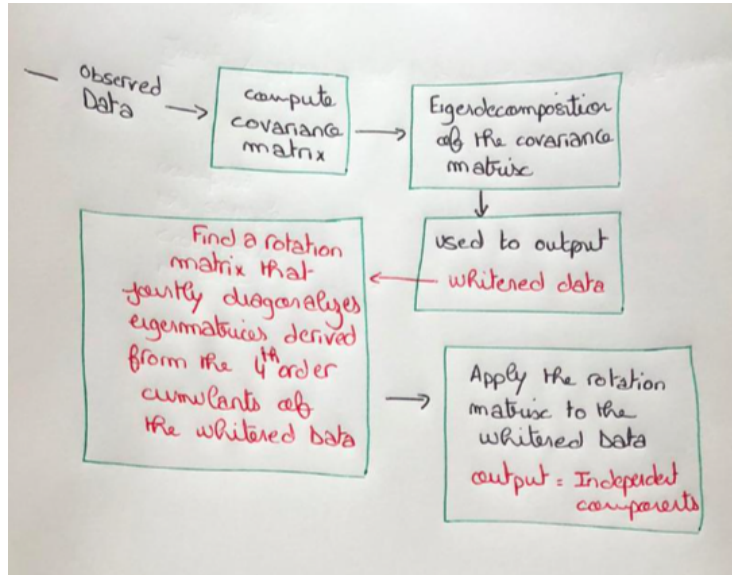 Observed
Data
compute
covariance
matrix
Eigendecomposition
of the covariance
matrix
used to output
whitened data
Find a rotation
matrix that
jointly diagonalizes
eigenmatrices derived
from the 4th order
cumulants of
the whitened Data
Apply the rotation
matrix to the
whitened Data
output = Independent
components